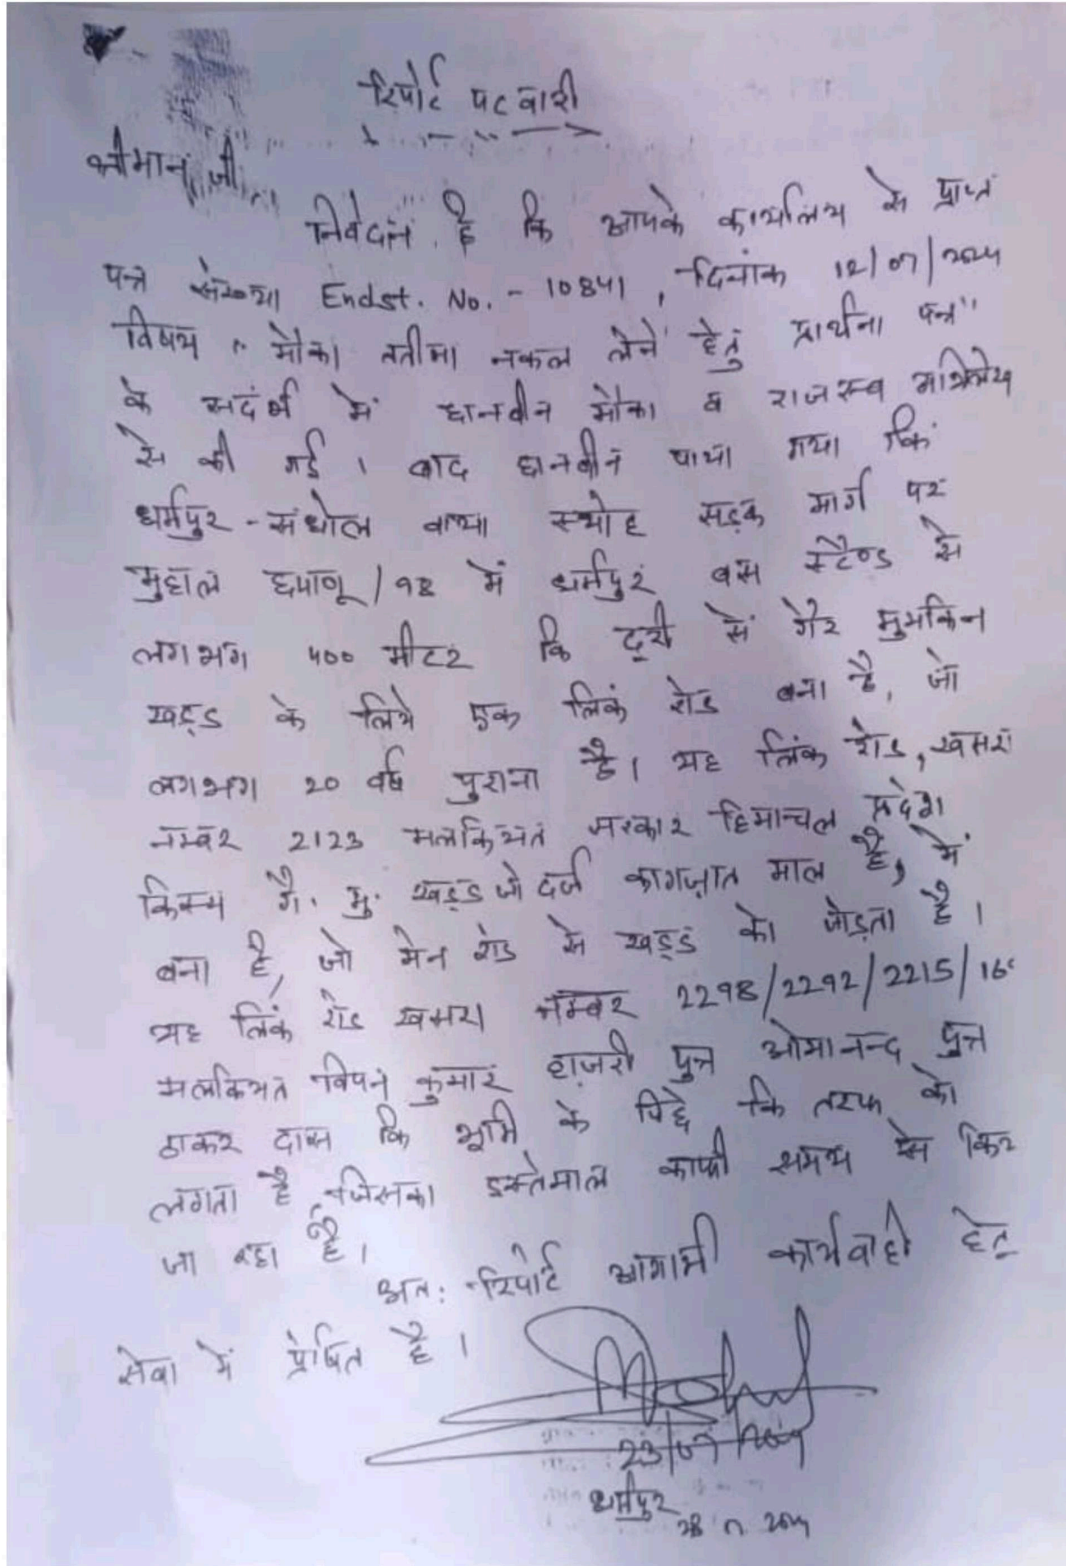 रिपोर्ट पटवारी
श्रीमान जी
निवेदन है कि आपके कार्यालय से प्राप्त
पत्र संख्या Endst. No. - 10841, दिनांक 12/07/2024
विषय "मौका ततीमा नकल लेने हेतु प्रार्थना पत्र"
के सदंर्भ में छानबीन मौका व राजस्व अभिलेख
से की गई । बाद छानबीन पाया गया कि
धर्मपुर - संधोल वाया स्योह सड़क मार्ग पर
मुहाल छपाणू / 98 में धर्मपुर बस स्टैण्ड से
लगभग 400 मीटर कि दूरी से गैर मुमकिन
खड्ड के लिये एक लिंक रोड बना है, जो
लगभग 20 वर्ष पुराना है। यह लिंक रोड, खसरा
नम्बर 2123 मलकियत सरकार हिमाचल प्रदेश
किस्म गै. मु. खड्ड जो दर्ज कागज़ात माल है, में
बना है, जो मेन रोड से खड्ड को जोड़ता है।
यह लिंक रोड खसरा नम्बर 2298/2292/2215/16
मलकियत विपन कुमार हाज़री पुत्र ओमानन्द पुत्र
ठाकर दास कि भूमि के पिछे कि तरफ को
लगता है, जिसका इस्तेमाल काफी समय से किय
जा रहा है।
अत: रिपोर्ट आगामी कार्यवाही हेतु
सेवा में प्रेषित है।
23/07/2024
धर्मपुर